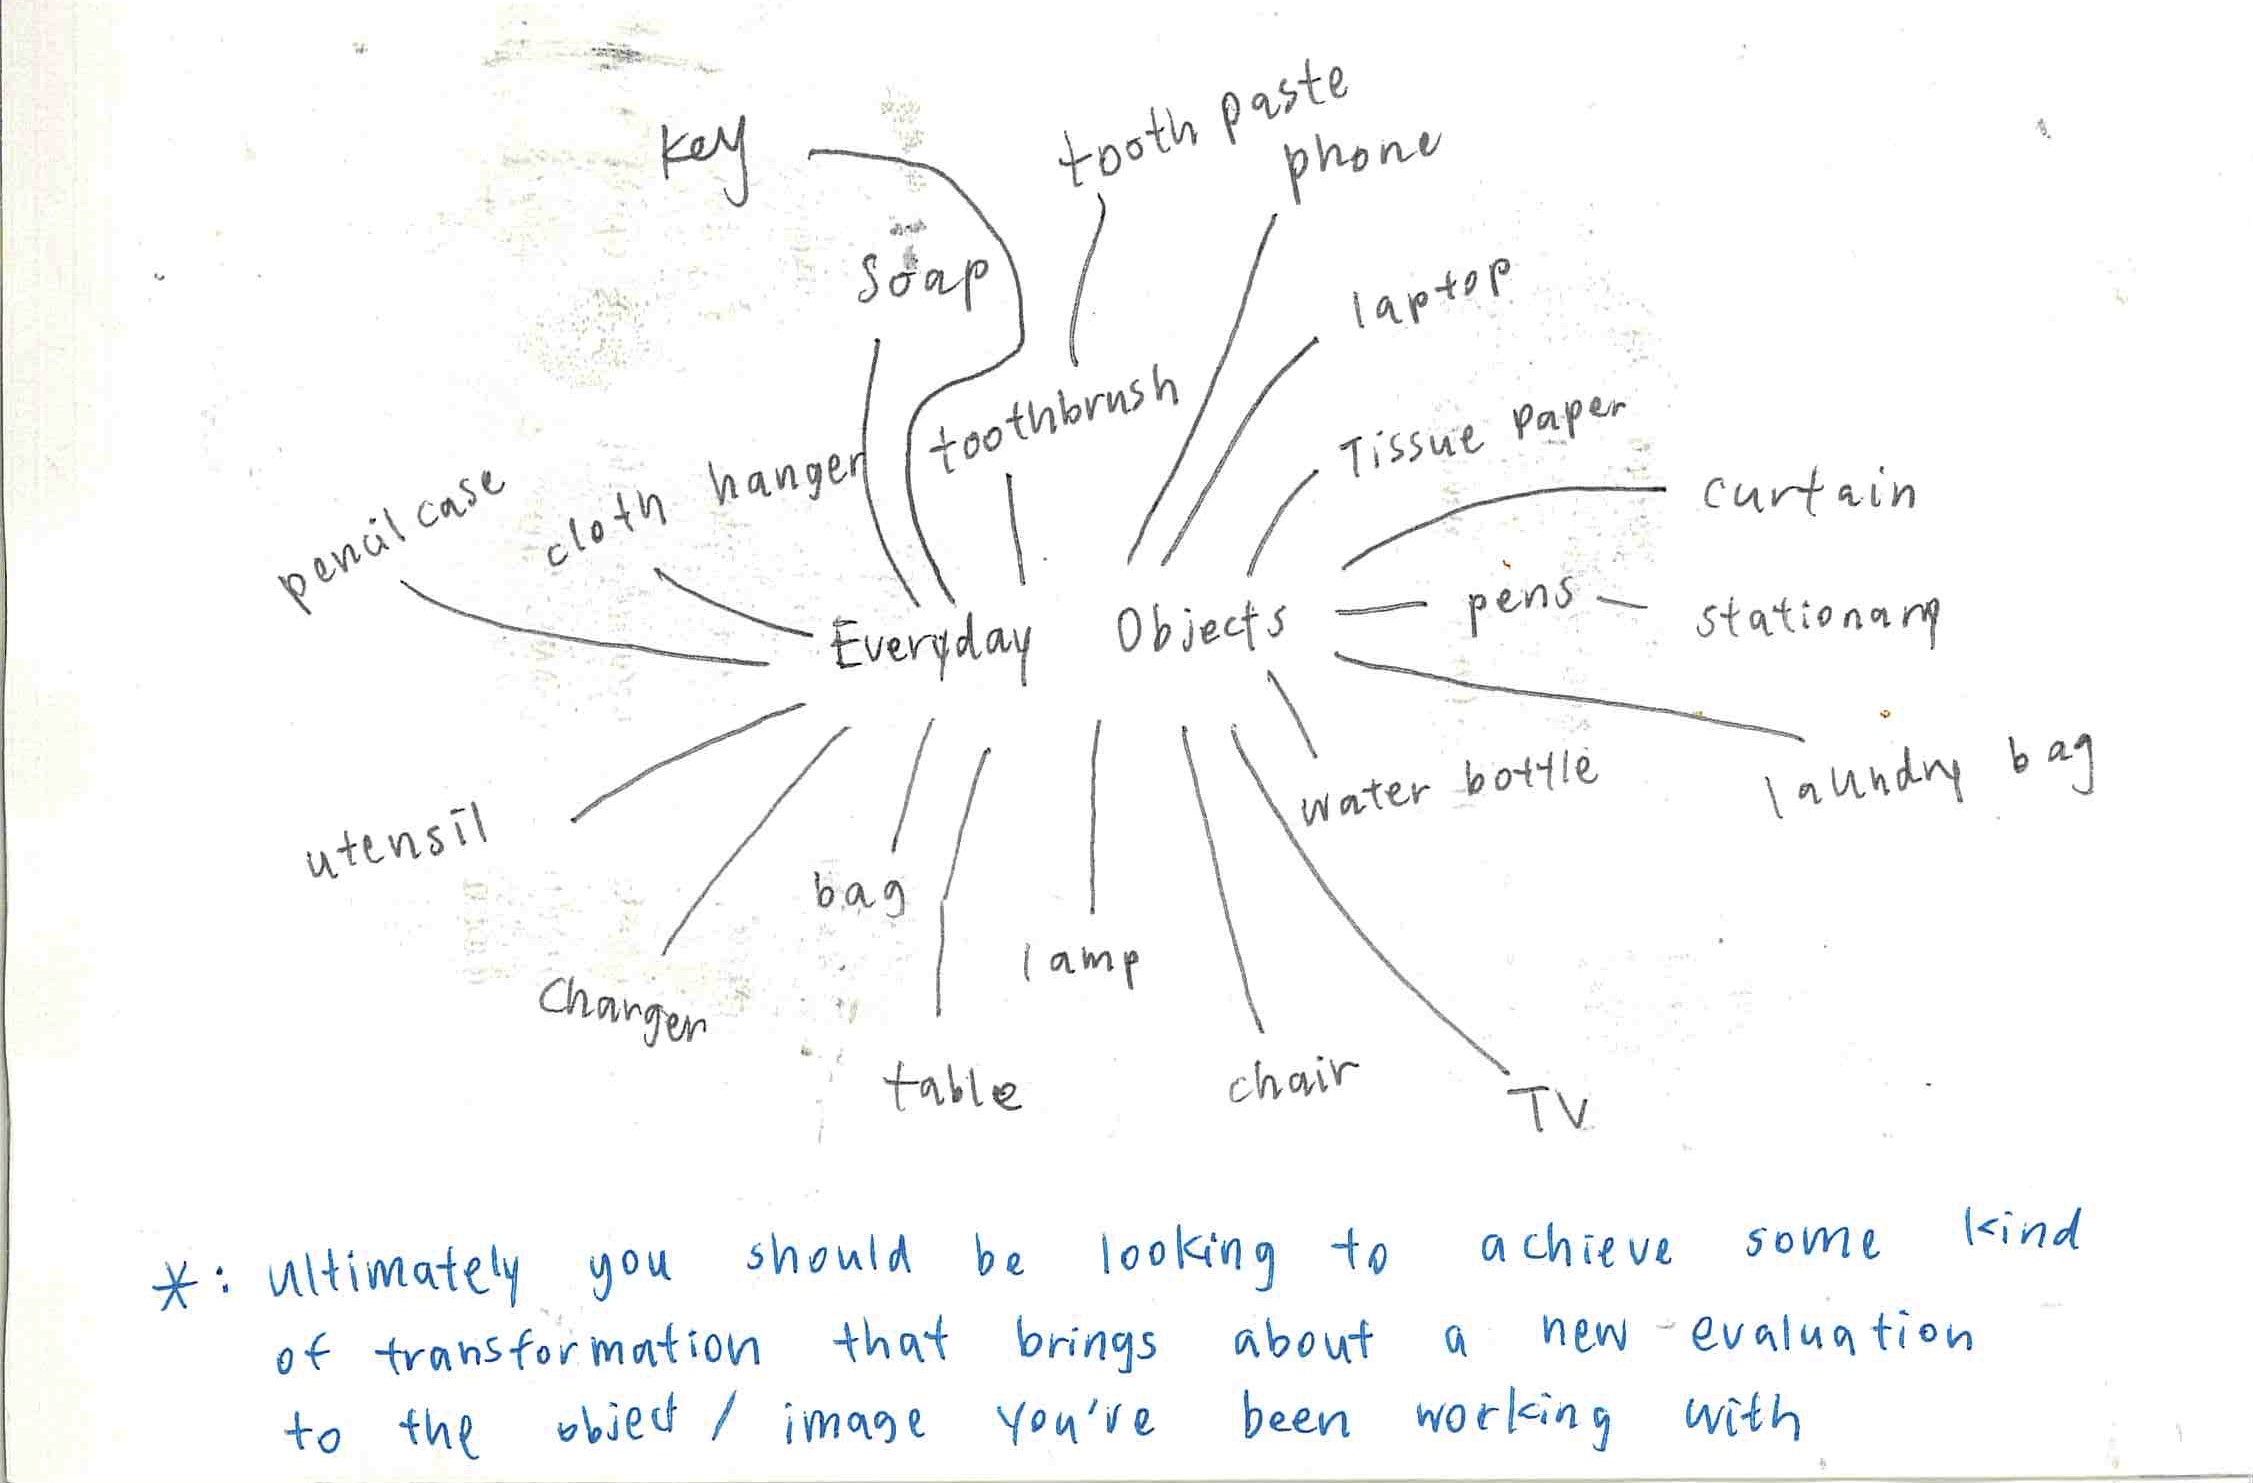 key
tooth paste
phone
soap
laptop
toothbrush
Tissue paper
cloth hanger
pencil case
curtain
Everyday Objects
pens
stationary
utensil
water bottle
laundry bag
bag
lamp
Charger
table
chair
TV
*: ultimately you should be looking to achieve some kind
of transformation that brings about a new evaluation
to the object / image you've been working with